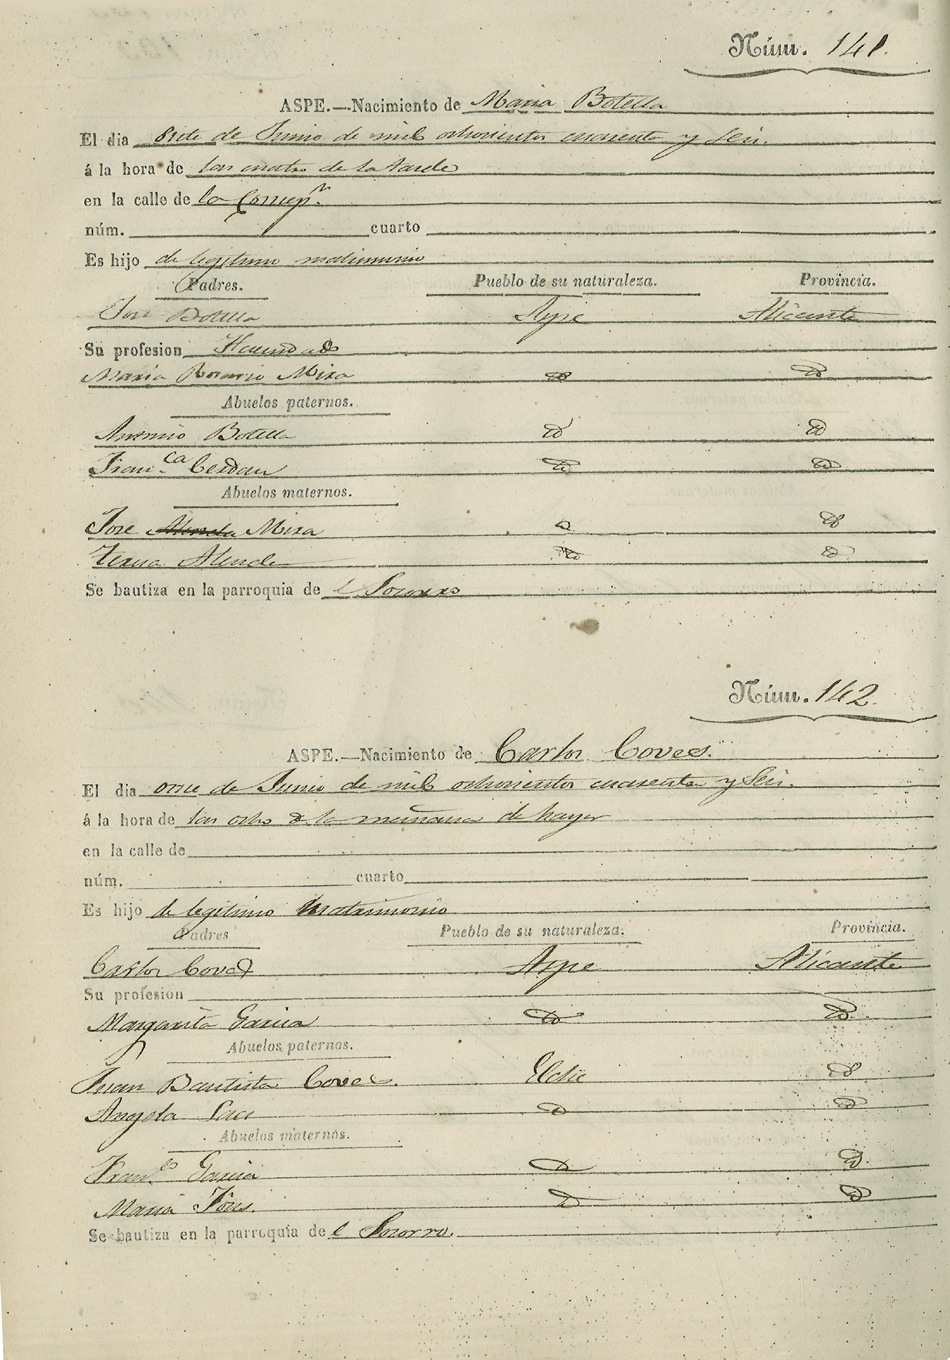 Núm. 141.
ASPE.—Nacimiento de Maria Botella
El dia de Junio de mil ochocientos cuarenta y Seis.
á la hora de las cuatro de la tarde
en la calle de la Concepn.
núm. cuarto
Es hijo de legitimo matrimonio
Padres. Pueblo de su naturaleza. Provincia.
Jose Botella Aspe Alicante
Su profesion Hacendado
Maria Rosario Mira id id
Abuelos paternos.
Antonio Botella id id
Fran.ca Cerdan id id
Abuelos maternos.
Jose Mira id id
Teresa id id
Se bautiza en la parroquia de l Socorro
Núm. 142
ASPE.—Nacimiento de Carlos Coves.
El dia once de Junio de mil ochocientos cuarenta y Seis.
á la hora de las ocho de la mañana de hayer
en la calle de
núm. cuarto
Es hijo de legitimo Matrimonio
Padres Pueblo de su naturaleza. Provincia.
Carlos Coves Aspe Alicante
Su profesion
Margarita Garcia id id
Abuelos paternos.
Juan Bautista Coves. Elche id
Angela id id
Abuelos maternos.
Fran.co Garcia id id
Maria id id
Se bautiza en la parroquia de l Socorro.